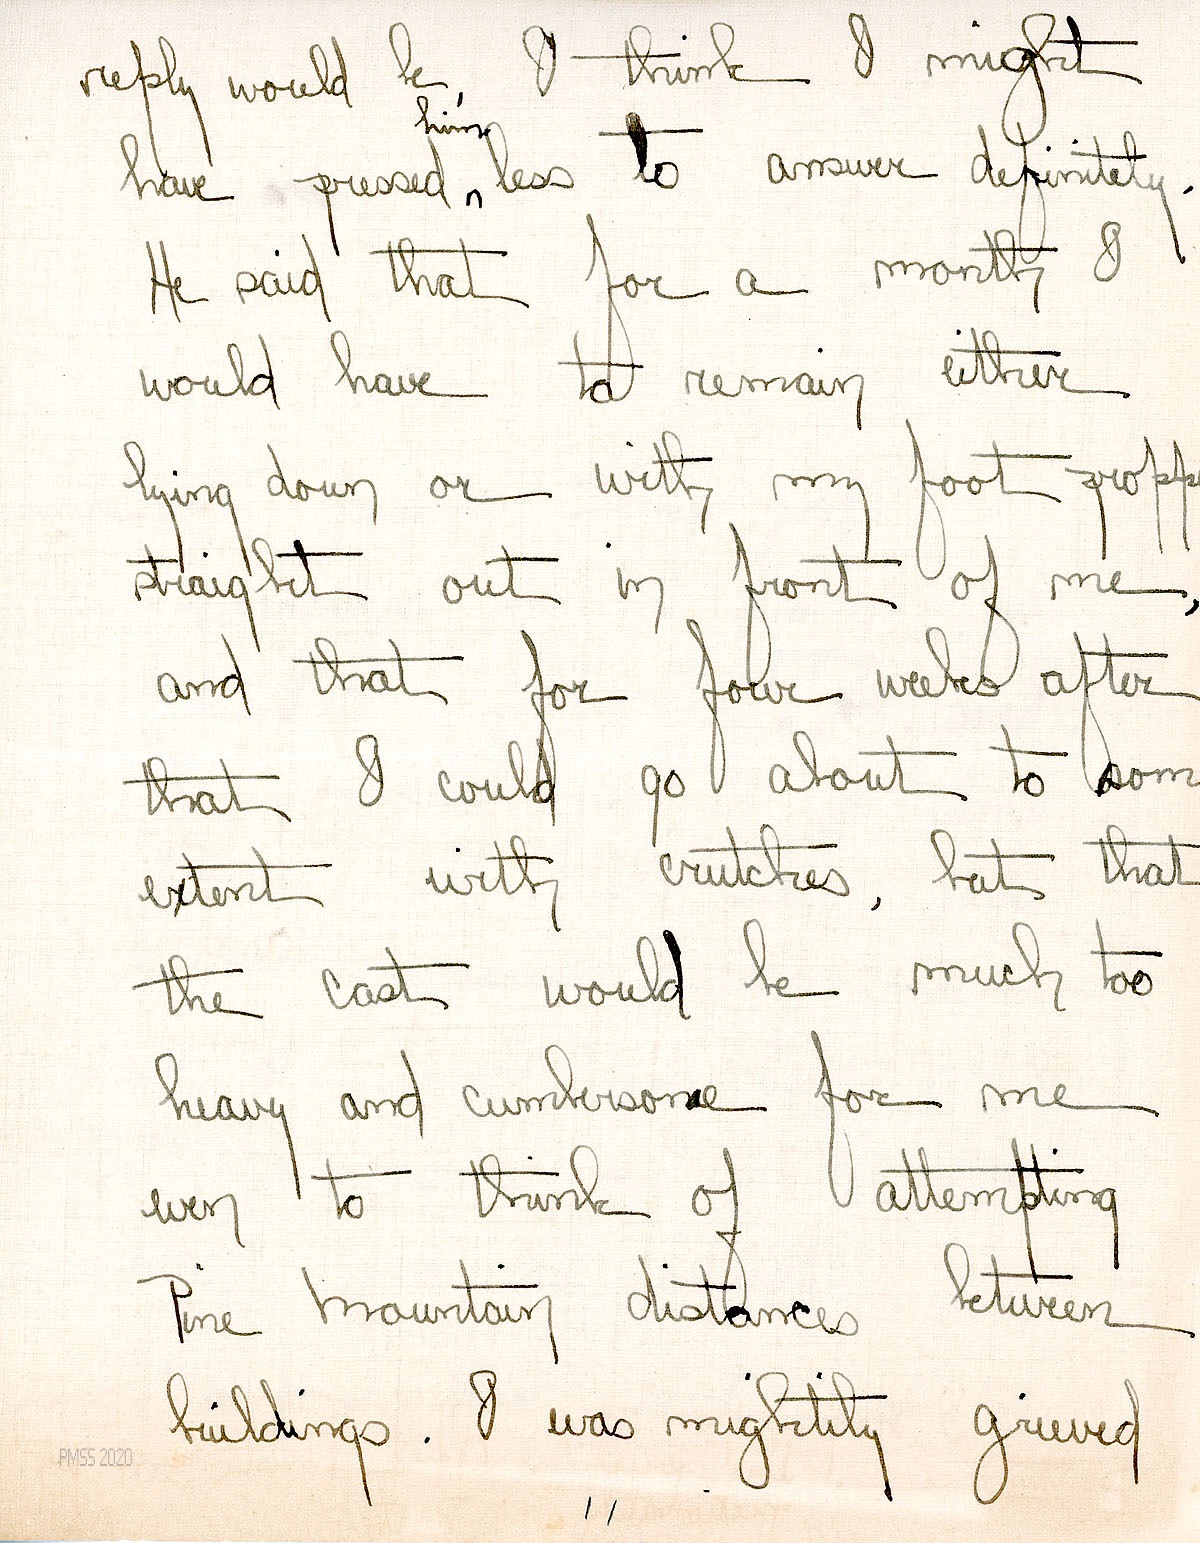 reply would be, I think I might
have pressed ^him less to answer definitely.
He said that for a month I
would have to remain either
lying down or with my foot propp
straight out in front of me,
and that for four weeks after
that I could go about to som
extent with crutches, but that
the cast would be much too
heavy and cumbersome for me
even to think of attempting
Pine Mountain distances between
buildings. I was mightily grieved
PMSS 2020
11